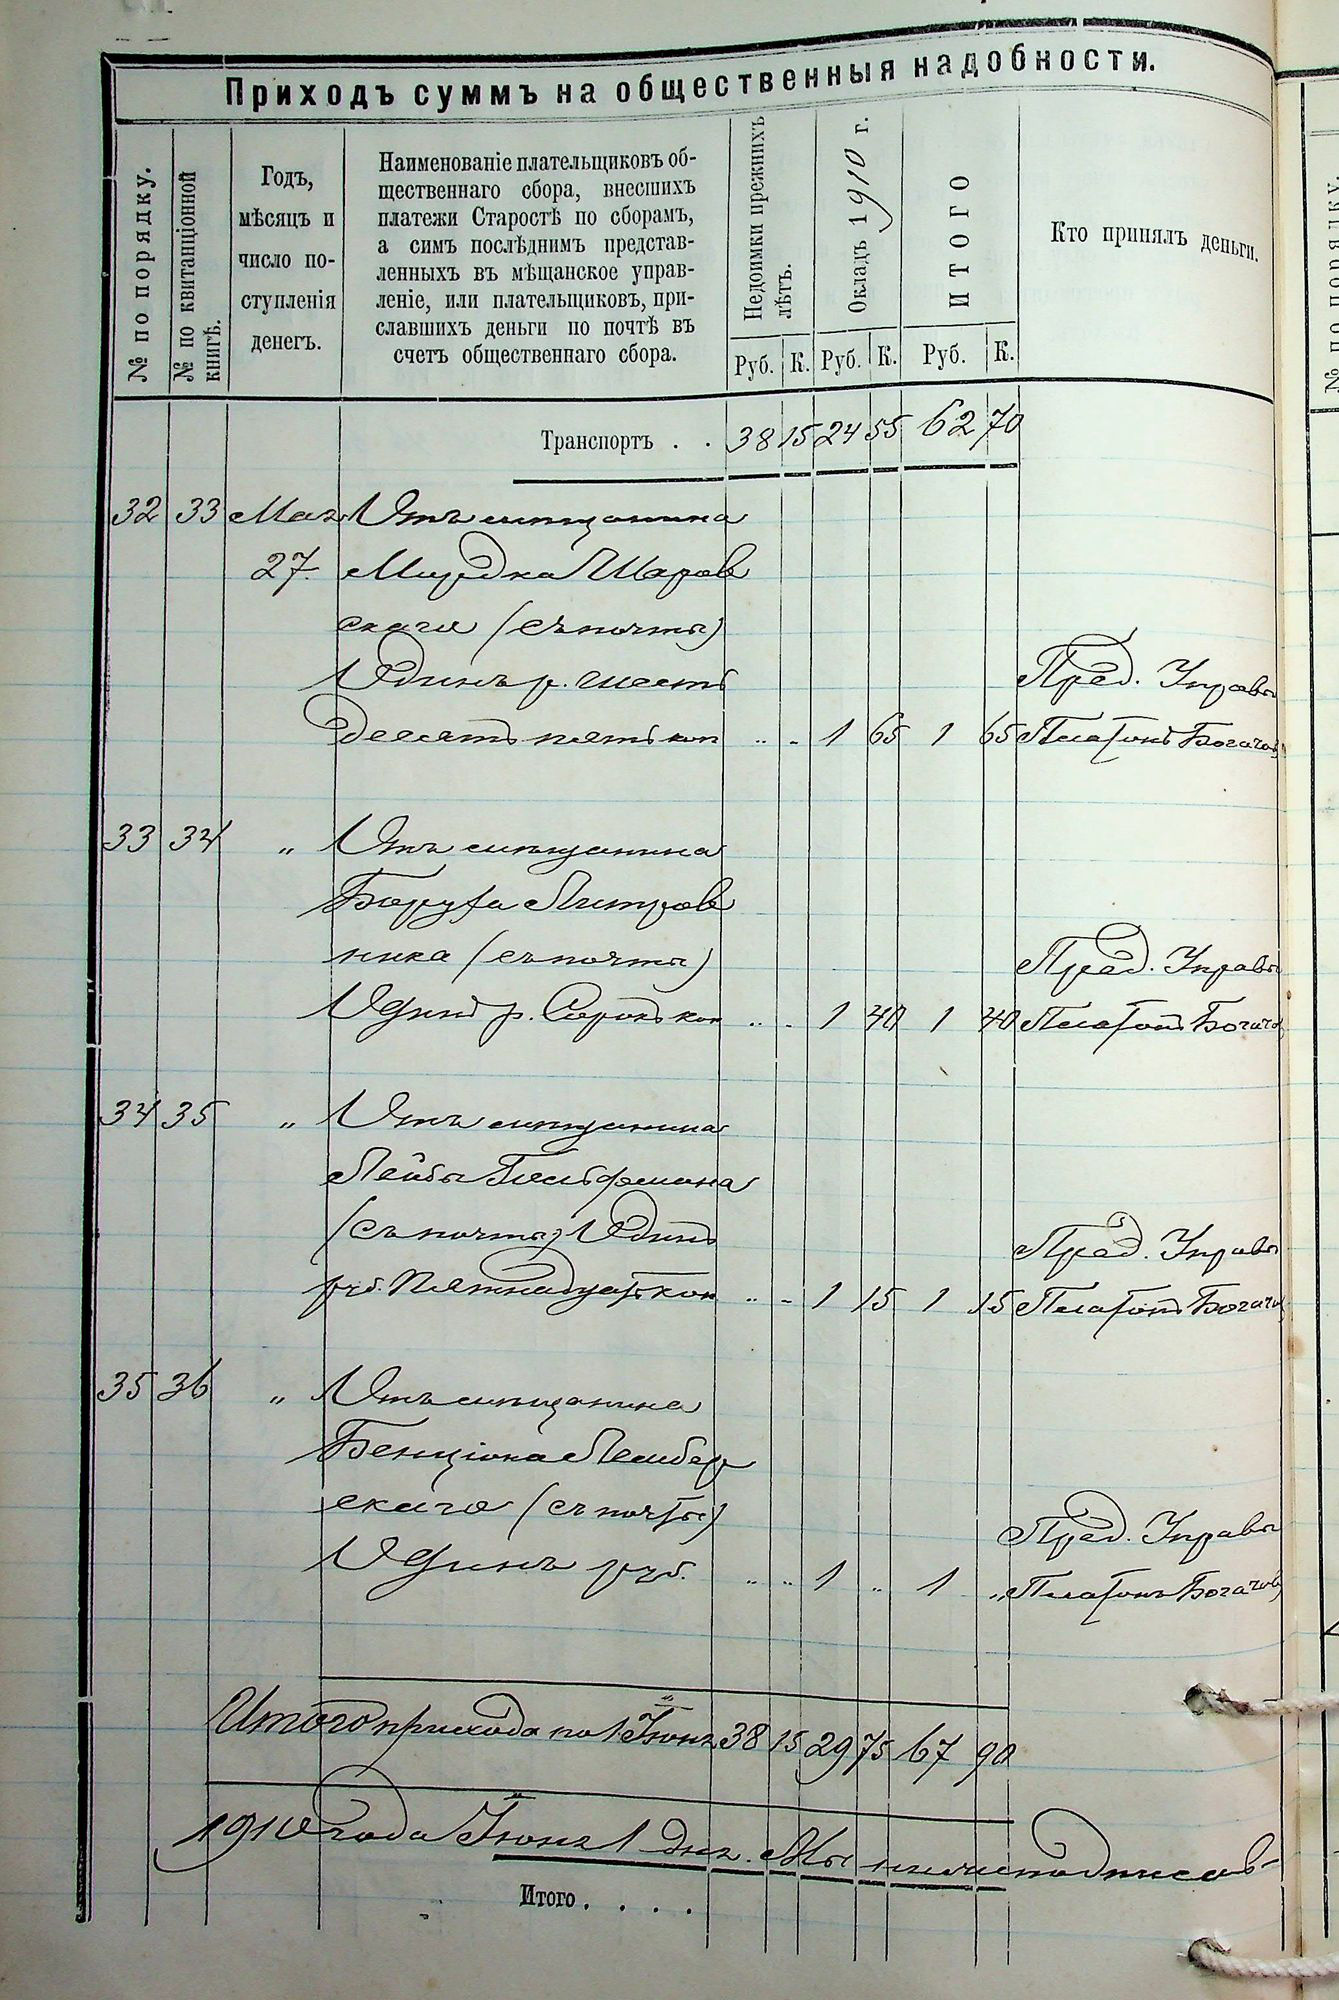 Приходъ суммъ на общественныя надобности.
№ по порядку.
№ по квитанціонной
книгѣ.
Годъ,
мѣсяцъ и
число по-
ступленія
денегъ.
Наименованіе плательщиковъ об-
щественнаго сбора, внесшихъ
платежи Старостѣ по сборамъ,
а симъ послѣднимъ представ-
ленныхъ въ мѣщанское управ-
леніе, или плательщиковъ, при-
славшихъ деньги по почтѣ въ
счетъ общественнаго сбора.
Недоимки прежнихъ
лѣтъ.
Окладъ 1910 г.
ИТОГО
Кто принялъ деньги.
Руб. К. Руб. К. Руб. К.
Транспортъ . . 38 15 24 55 62 70
32 33 Мая Отъ мѣщанина
27. Шаров
скаго (съ почты)
Одинъ р. шесть
десятъ пять коп „ „ 1 65 1 65
Пред. Управы
Платонъ Богачов
33 34 „ Отъ мѣщанина
Боруха Питров
ника (съ почты)
Одинъ р. Сорокъ коп „ „ 1 40 1 40
Пред. Управы
Платонъ Богачов
34 35 „ Отъ мѣщанина
Лейбы Гельфмана
(съ почты) Одинъ
руб. Пятнадцать коп „ „ 1 15 1 15
Пред. Управы
Платонъ Богачов
35 36 „ Отъ мѣщанина
Бенціона Лемберг
скаго (съ почты)
Одинъ руб. „ „ 1 „ 1 „
Пред. Управы
Платонъ Богачов
Итого прихода по 1 Іюня 38 15 29 75 67 90
1910 года Іюня 1 дня. Мы нижеподписав-
Итого . . . .
№ по порядку.